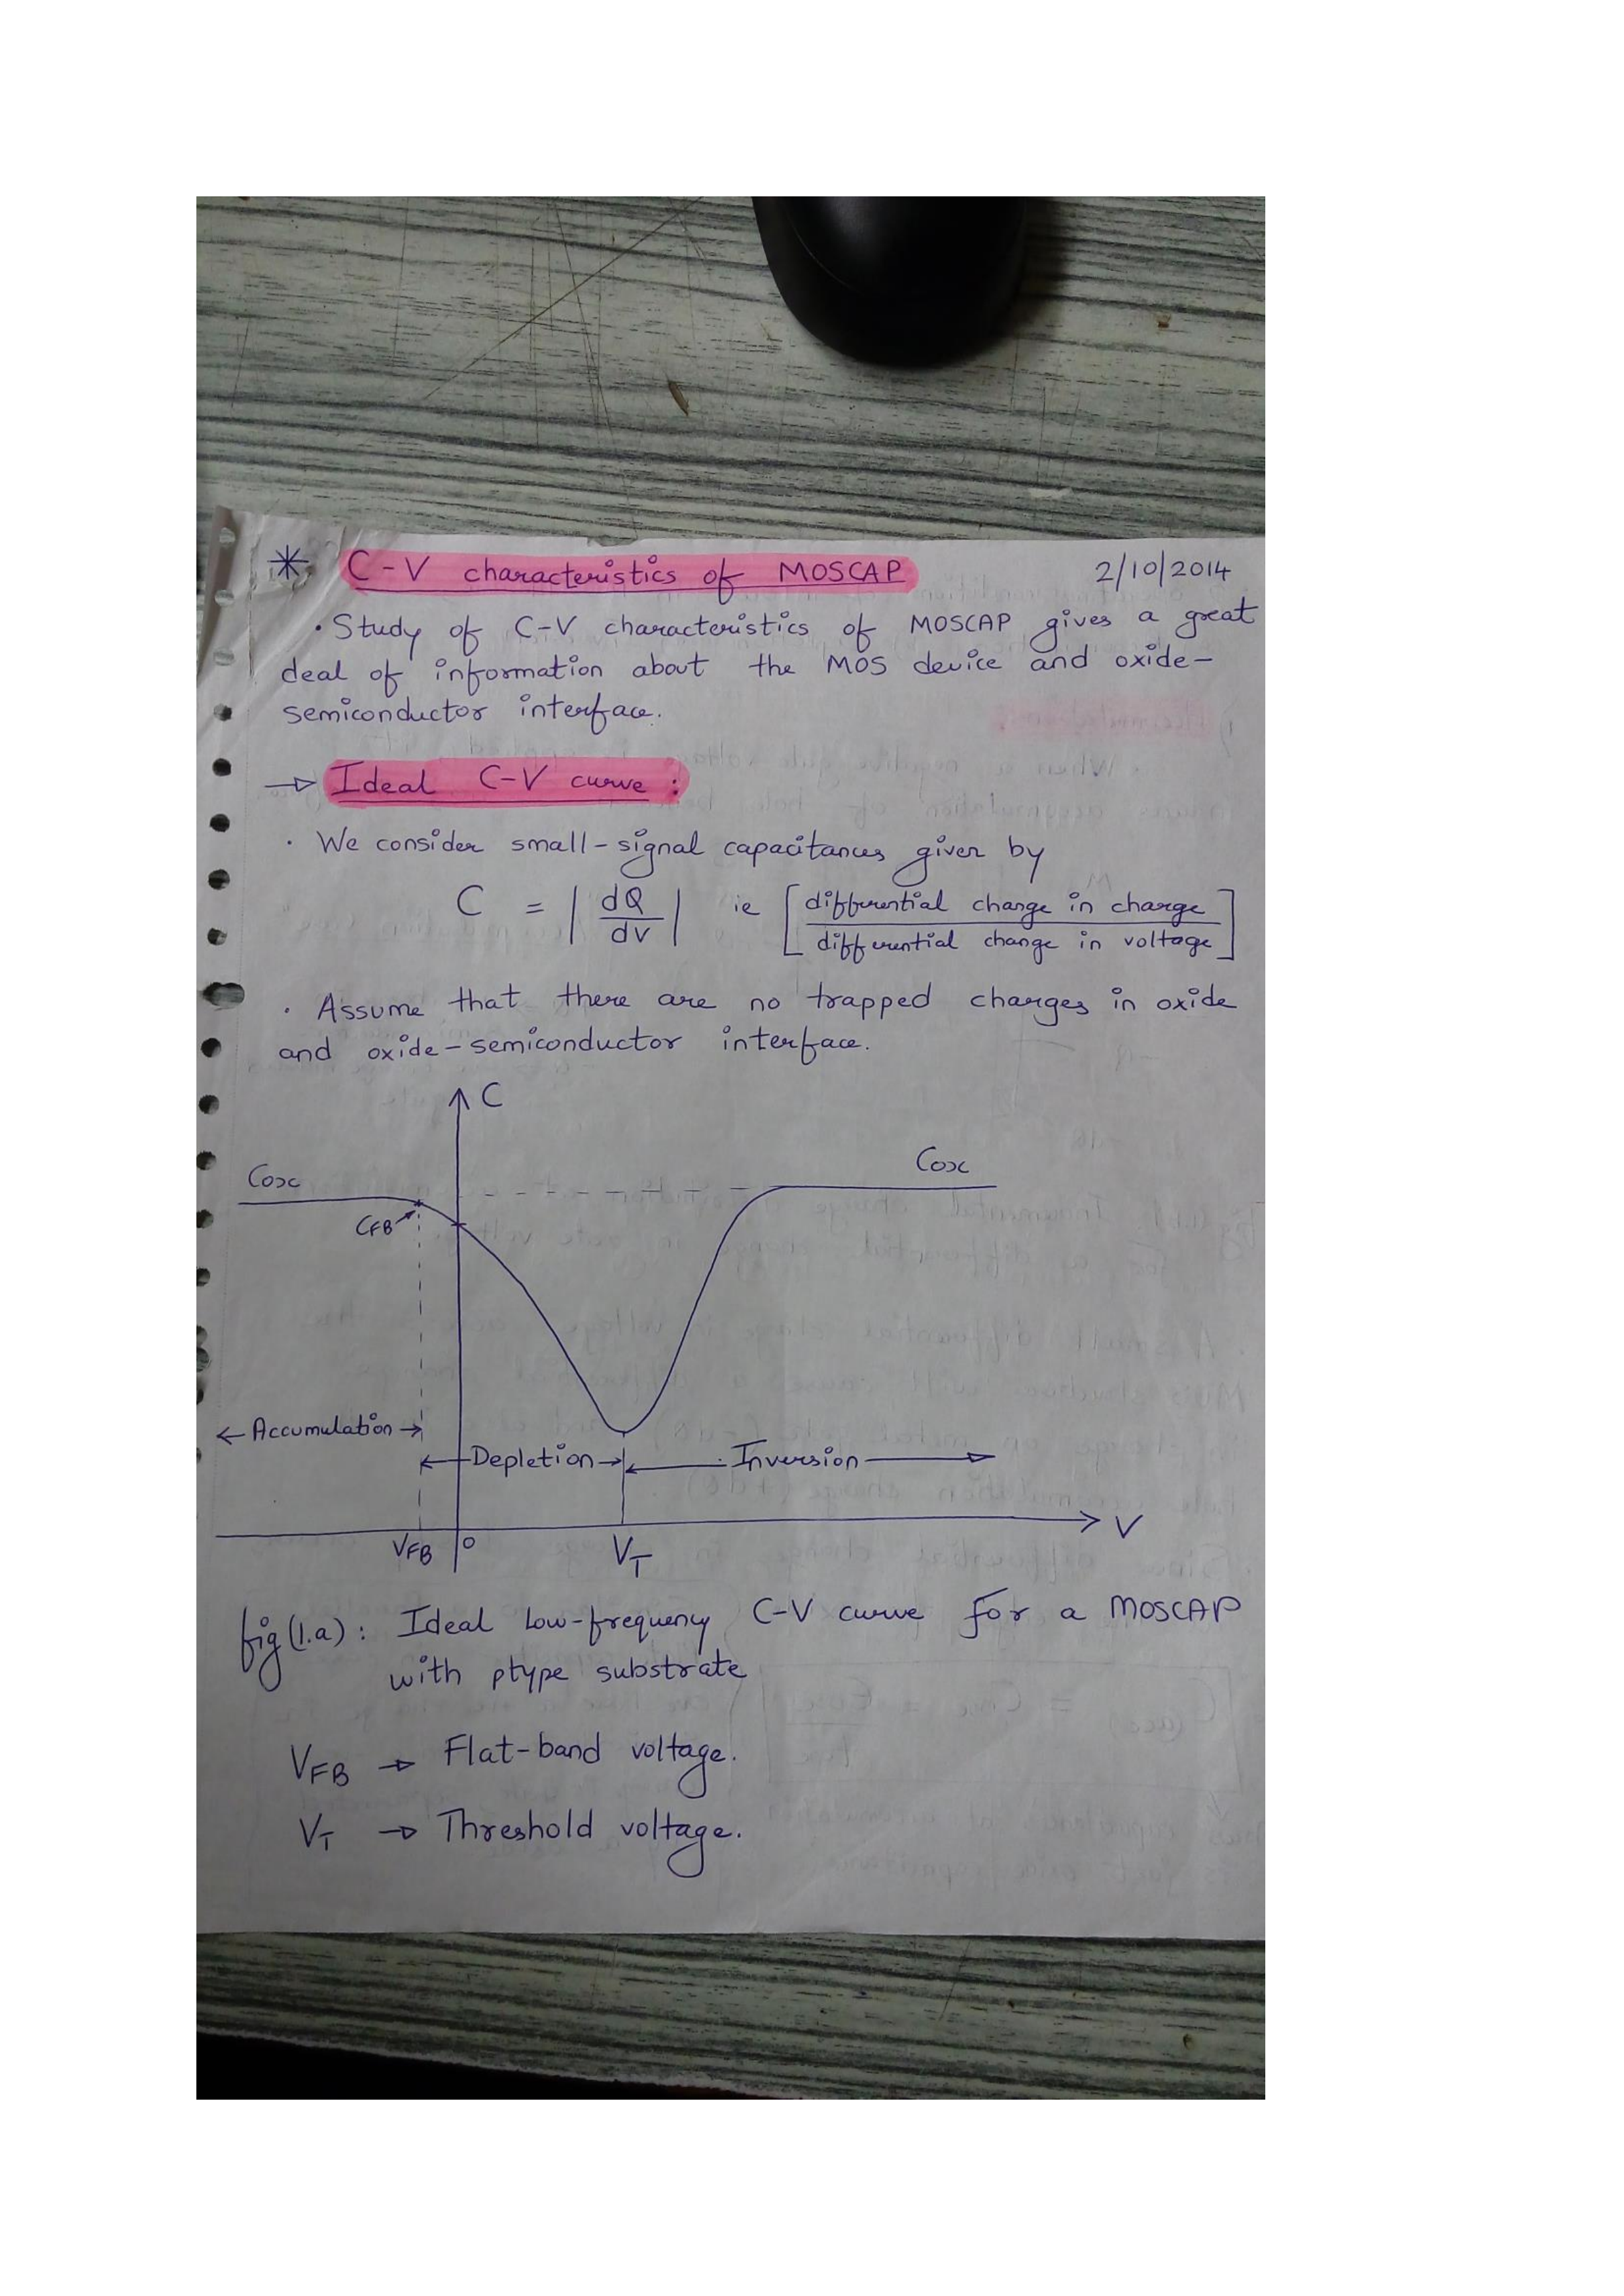 * C-V characteristics of MOSCAP 2/10/2014
· Study of C-V characteristics of MOSCAP gives a great
deal of information about the MOS device and oxide-
semiconductor interface.
→ Ideal C-V curve :
· We consider small-signal capacitances given by
C = | dQ / dv | ie [ differential change in charge / differential change in voltage ]
· Assume that there are no trapped charges in oxide
and oxide-semiconductor interface.
C
Cox
Cox
CFB
← Accumulation →
← Depletion →
← Inversion →
VFB
0
VT
V
fig (1.a) : Ideal Low-frequency C-V curve for a MOSCAP
with ptype substrate
VFB → Flat-band voltage.
VT → Threshold voltage.